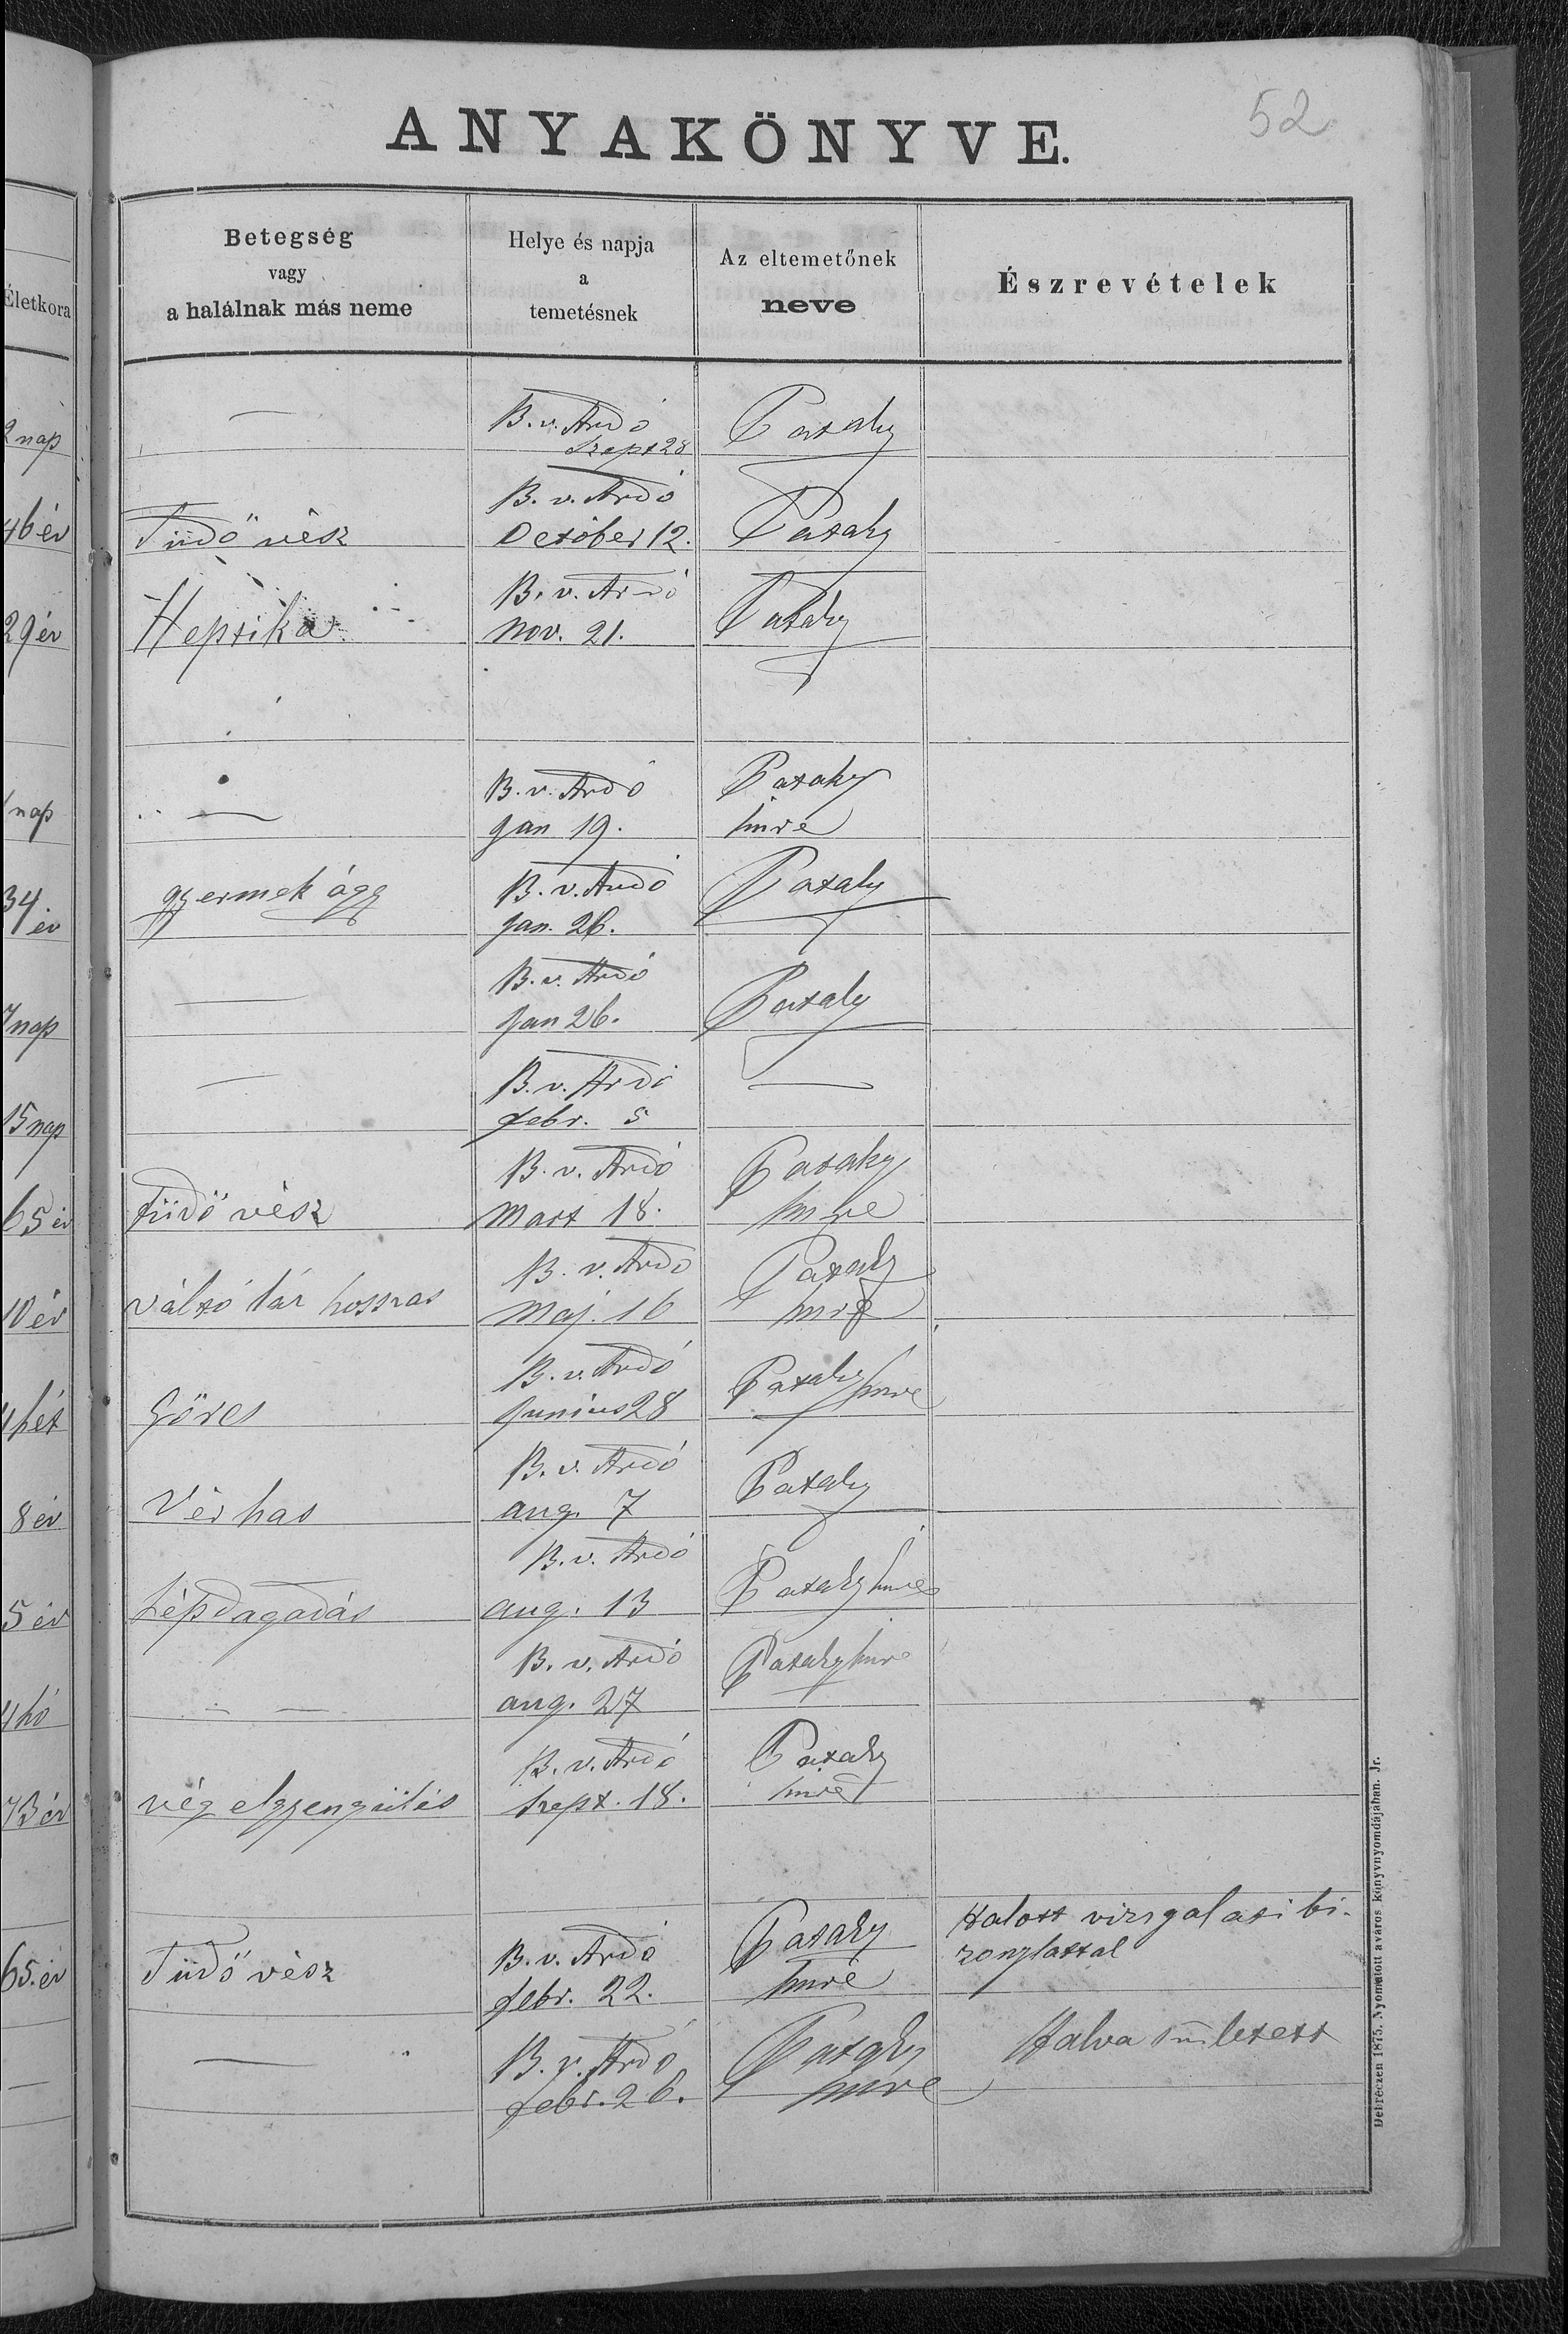 52
ANYAKÖNYVE.
Életkora
Betegség
vagy
a halálnak más neme
Helye és napja
a
temetésnek
Az eltemetőnek
neve
Észrevételek
2 nap
—
B. v. Ardó
Szept 28
Pataky
46 év
Tüdő vész
B. v. Ardó
October 12.
Pataky
29 év
Heptika
B. v. Ardó
nov. 21.
Pataky
nap
—
B. v. Ardó
Jan 19.
Pataky
Imre
34
év
gyermek ágy
B. v. Ardó
Jan. 26.
Pataky
7 nap
—
B. v. Ardó
Jan 26.
Pataky
15 nap
—
B. v. Ardó
febr. 5
—
65 év
Tüdő vész
B. v. Ardó
Mart 18.
Pataky
Imre
10 év
váltó láz hosszas
B. v. Ardó
Maj. 16
Pataky
Imre
4 hét
Görcs
B. v. Ardó
Junius 28
Pataky Imre
8 év
Vér has
B. v. Ardó
aug. 7
Pataky
5 év
Lépdagadás
B. v. Ardó
aug. 13
Pataky Imre
4 hó
— —
B. v. Ardó
aug. 27
Pataky Imre
73 év
vég elgyengülés
B. v. Ardó
Szept. 18.
Pataky
Imre
65. év
Tüdő vész
B. v. Ardó
febr. 22.
Pataky
Imre
Halott vizsgalati bi-
zonylattal
—
—
B. v. Ardó
febr. 26.
Pataky
Imre
Halva született
Debreczen 1875. Nyomatott a város könyvnyomdájában. Jr.